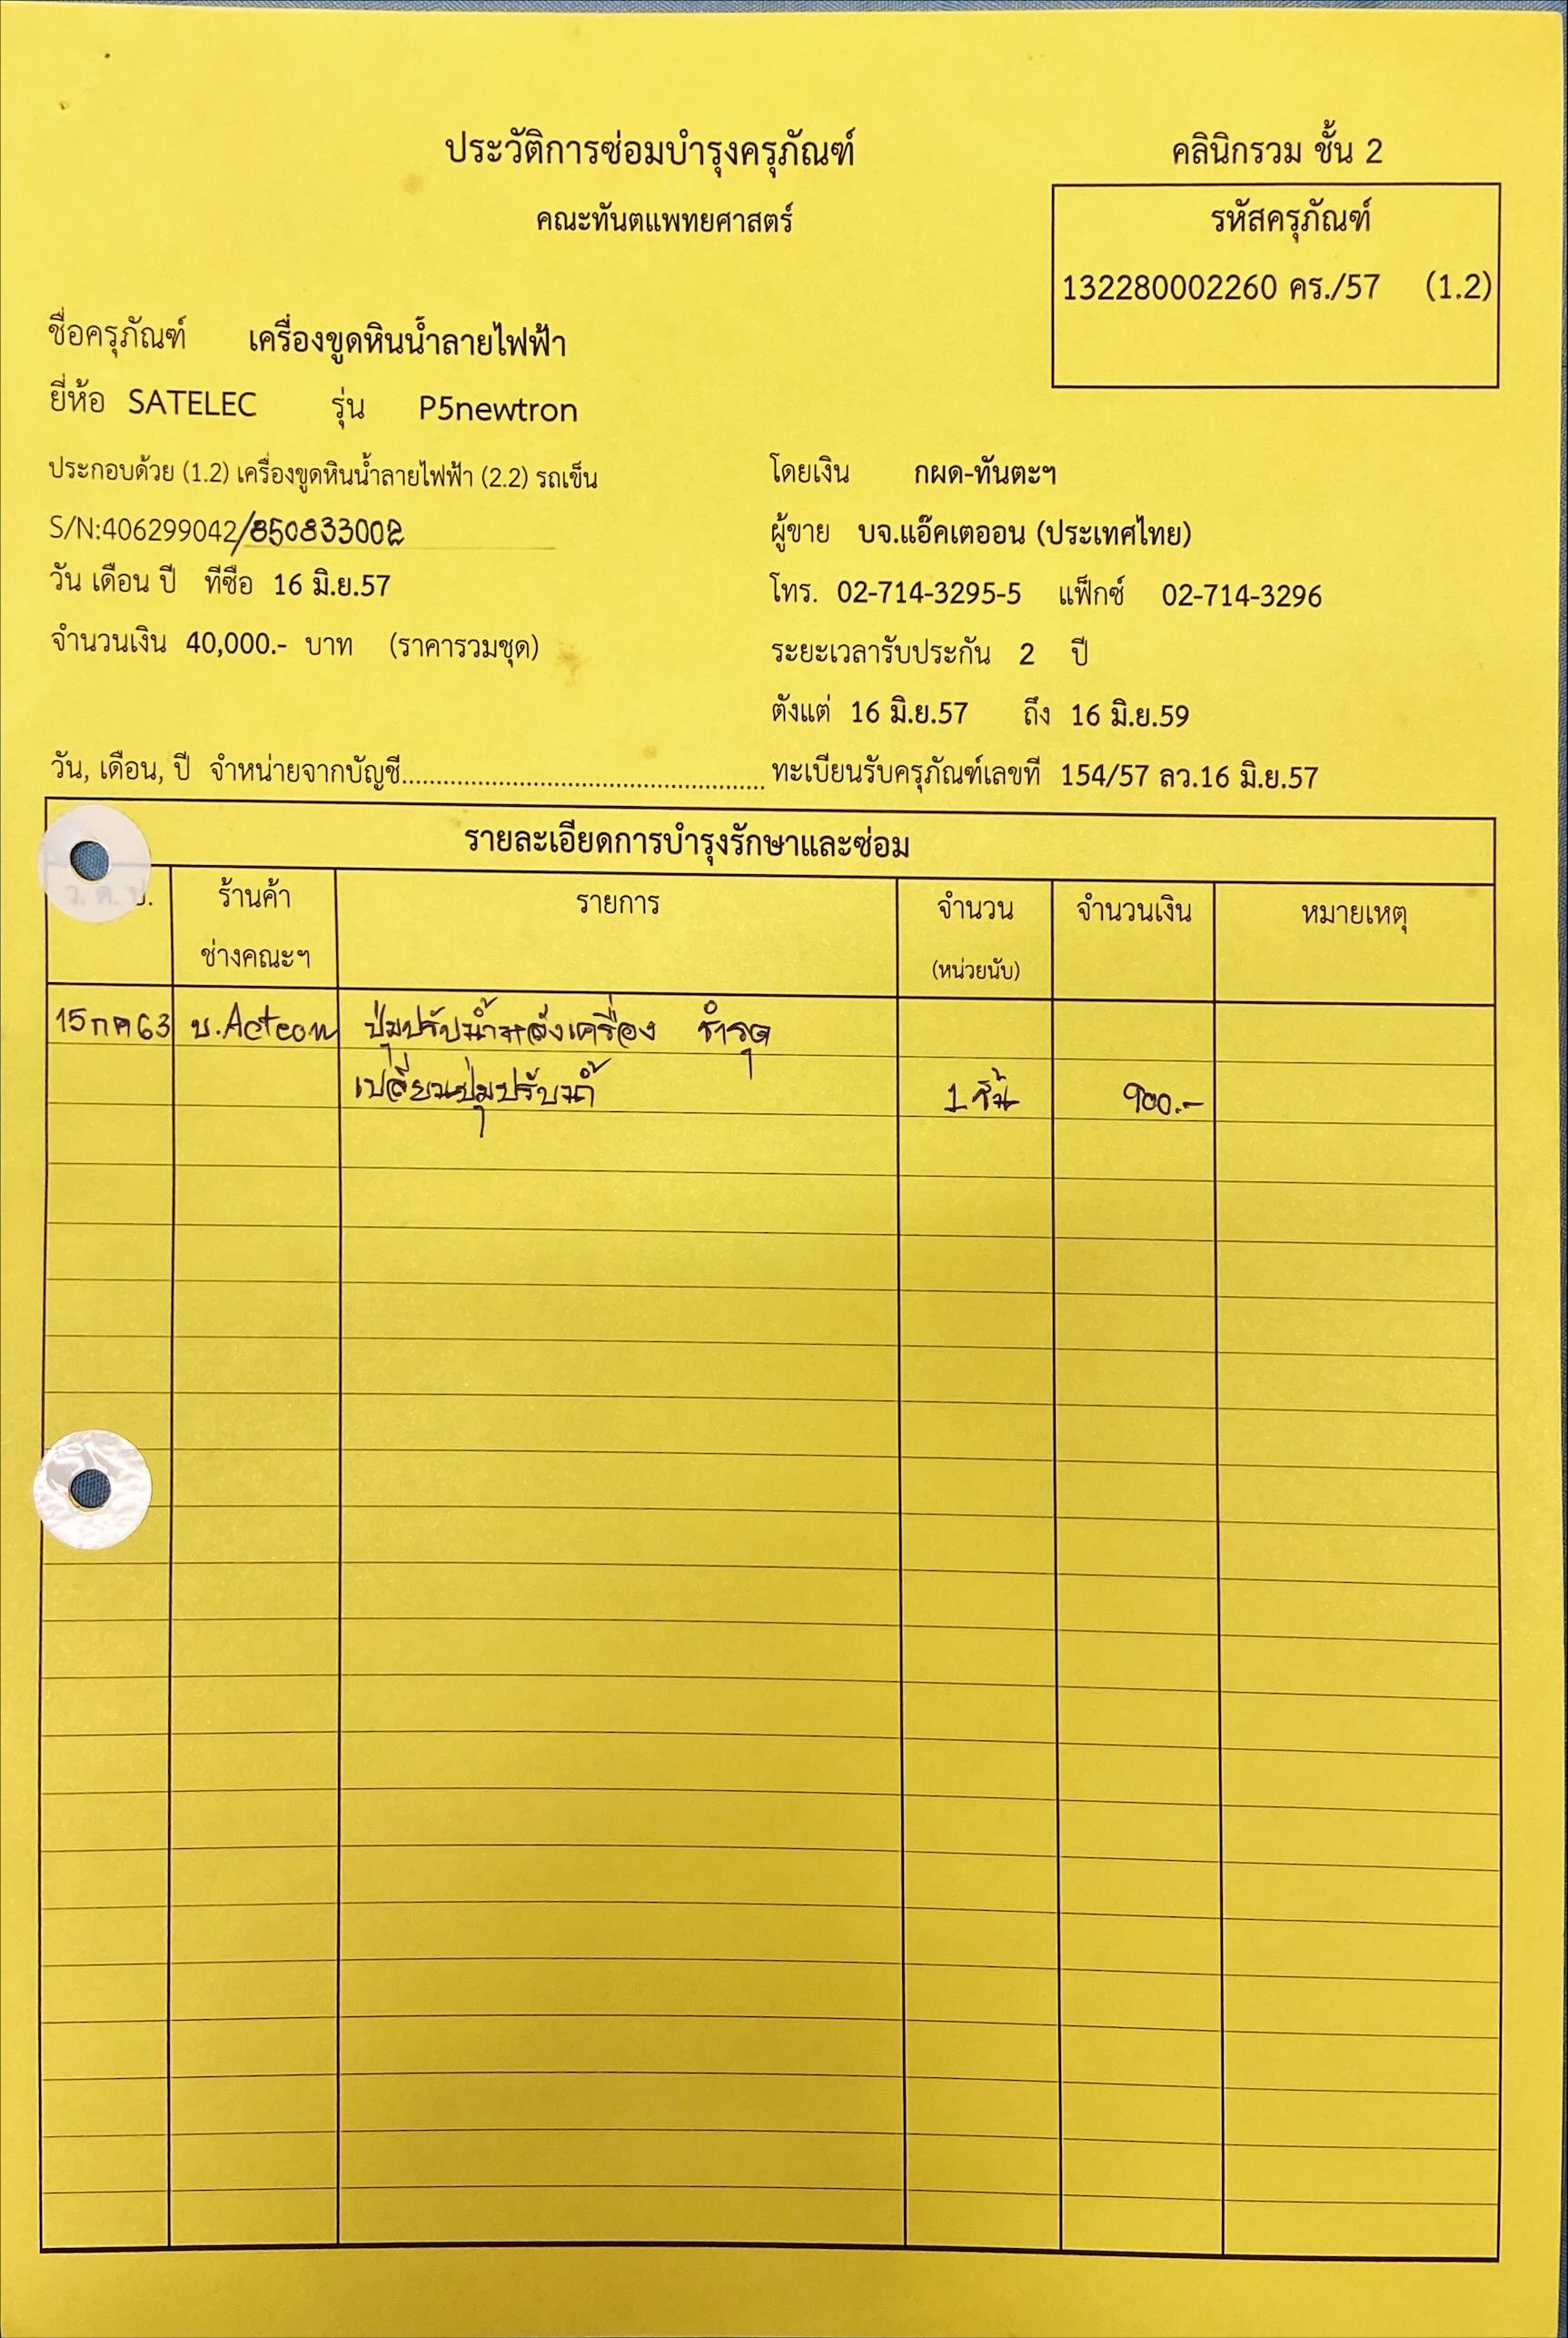 ประวัติการซ่อมบำรุงครุภัณฑ์
คลินิกรวม ชั้น 2
คณะทันตแพทยศาสตร์
รหัสครุภัณฑ์
132280002260 คร./57 (1.2)
ชื่อครุภัณฑ์ เครื่องขูดหินน้ำลายไฟฟ้า
ยี่ห้อ SATELEC รุ่น P5newtron
ประกอบด้วย (1.2) เครื่องขูดหินน้ำลายไฟฟ้า (2.2) รถเข็น
โดยเงิน กผด-ทันตะฯ
S/N:406299042/850833002
ผู้ขาย บจ.แอ๊คเตออน (ประเทศไทย)
วัน เดือน ปี ที่ซื้อ 16 มิ.ย.57
โทร. 02-714-3295-5 แฟ็กซ์ 02-714-3296
จำนวนเงิน 40,000.- บาท (ราคารวมชุด)
ระยะเวลารับประกัน 2 ปี
ตั้งแต่ 16 มิ.ย.57 ถึง 16 มิ.ย.59
วัน, เดือน, ปี จำหน่ายจากบัญชี....................................................
ทะเบียนรับครุภัณฑ์เลขที่ 154/57 ลว.16 มิ.ย.57
รายละเอียดการบำรุงรักษาและซ่อม
ว. ด. ป. ร้านค้า รายการ จำนวน จำนวนเงิน หมายเหตุ
ช่างคณะฯ (หน่วยนับ)
15 กค 63 บ.Acteon ปุ่มปรับน้ำหลังเครื่อง ชำรุด
เปลี่ยนปุ่มปรับน้ำ 1 ชิ้น 900.-